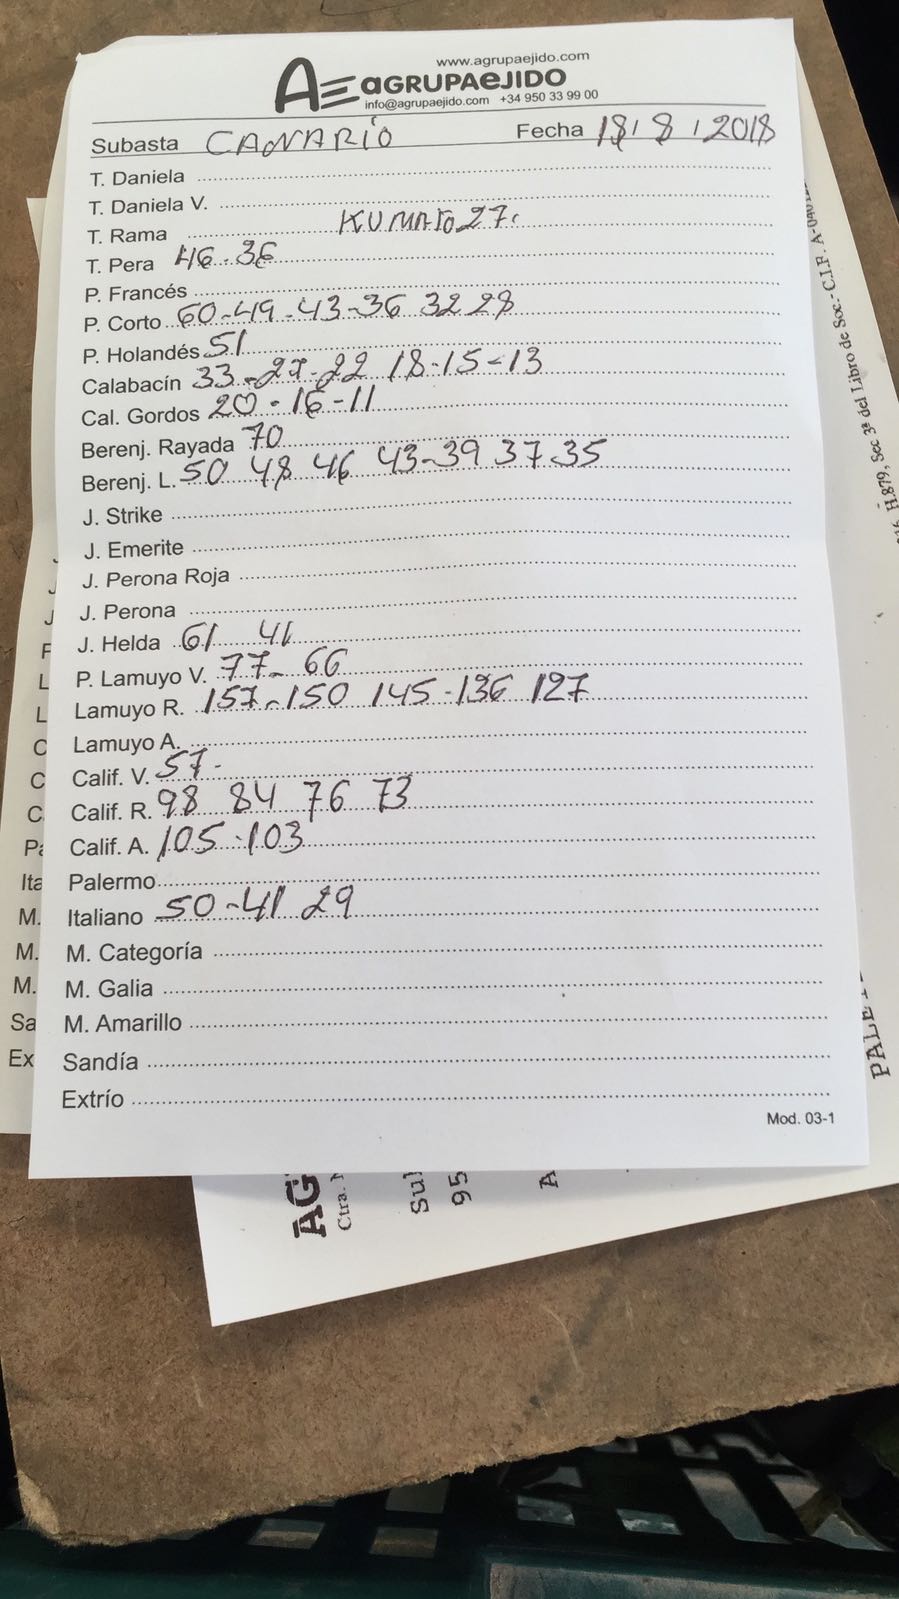 www.agrupaejido.com
AE aGRUPAeJIDO
info@agrupaejido.com +34 950 33 99 00
Subasta CANARIO Fecha 18/8/2018
T. Daniela
T. Daniela V.
T. Rama KUMATO 27.
T. Pera 46-36
P. Francés
P. Corto 60-49-43-36 32 28
P. Holandés 51
Calabacín 33-27-22 18-15-13
Cal. Gordos 20-16-11
Berenj. Rayada 70
Berenj. L. 50 48 46 43-39 37-35
J. Strike
J. Emerite
J. Perona Roja
J. Perona
J. Helda 61 41
P. Lamuyo V. 77-66
Lamuyo R. 157-150 145-136 127
Lamuyo A.
Calif. V. 57-
Calif. R. 98 84 76 73
Calif. A. 105-103
Palermo
Italiano 50-41 29
M. Categoría
M. Galia
M. Amarillo
Sandía
Extrío
Mod. 03-1
H.879, Sec 3ª del Libro de Soc.- C.I.F.
Ita
M.
M.
M.
Sa
Ex
AG
Ctra.
95
A